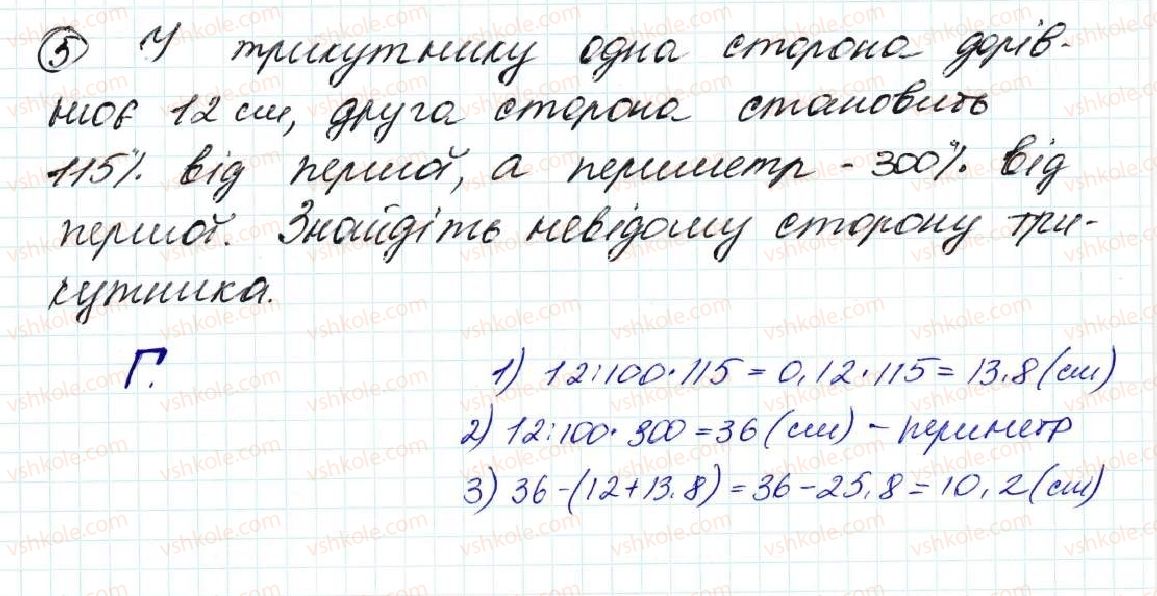 5) У трикутнику одна сторона дорів-
нює 12 см, друга сторона становить
115% від першої, а периметр - 300% від
першої. Знайдіть невідому сторону три-
кутника.
Г.
1) 12:100·115 = 0,12·115 = 13,8 (см)
2) 12:100·300 = 36 (см) - периметр
3) 36-(12+13,8) = 36-25,8 = 10,2 (см)